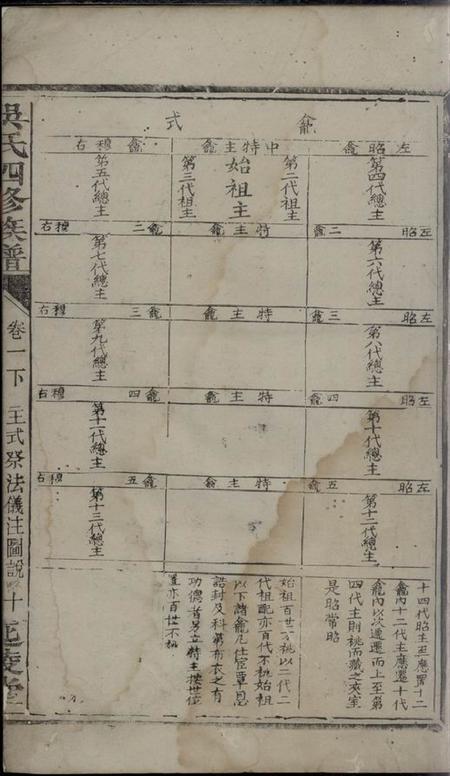 龕式
左昭龕
中特主龕
龕穆右
第四代總主
第二代祖主
始祖主
第三代祖主
第五代總主
左昭二龕
特主龕
龕二穆右
第六代總主
第七代總主
左昭三龕
特主龕
龕三穆右
第八代總主
第九代總主
左昭四龕
特主龕
龕四穆右
第十代總主
第十一代總主
左昭五龕
特主龕
龕五穆右
第十二代總主
第十三代總主
十四代昭主至應置十二
龕內十二代主應遷十代
龕內以次遞遷而上至第
四代主則祧而藏之夾室
是昭常昭
始祖百世不祧以二代三
代祖配亦百代不祧始祖
以下諸龕凡仕宦覃恩
誥封及科第布衣之有
功德者另立特主按世位
置亦百世不祧
吳氏四修族譜
卷一下
主式祭法儀注圖說
十
延陵堂